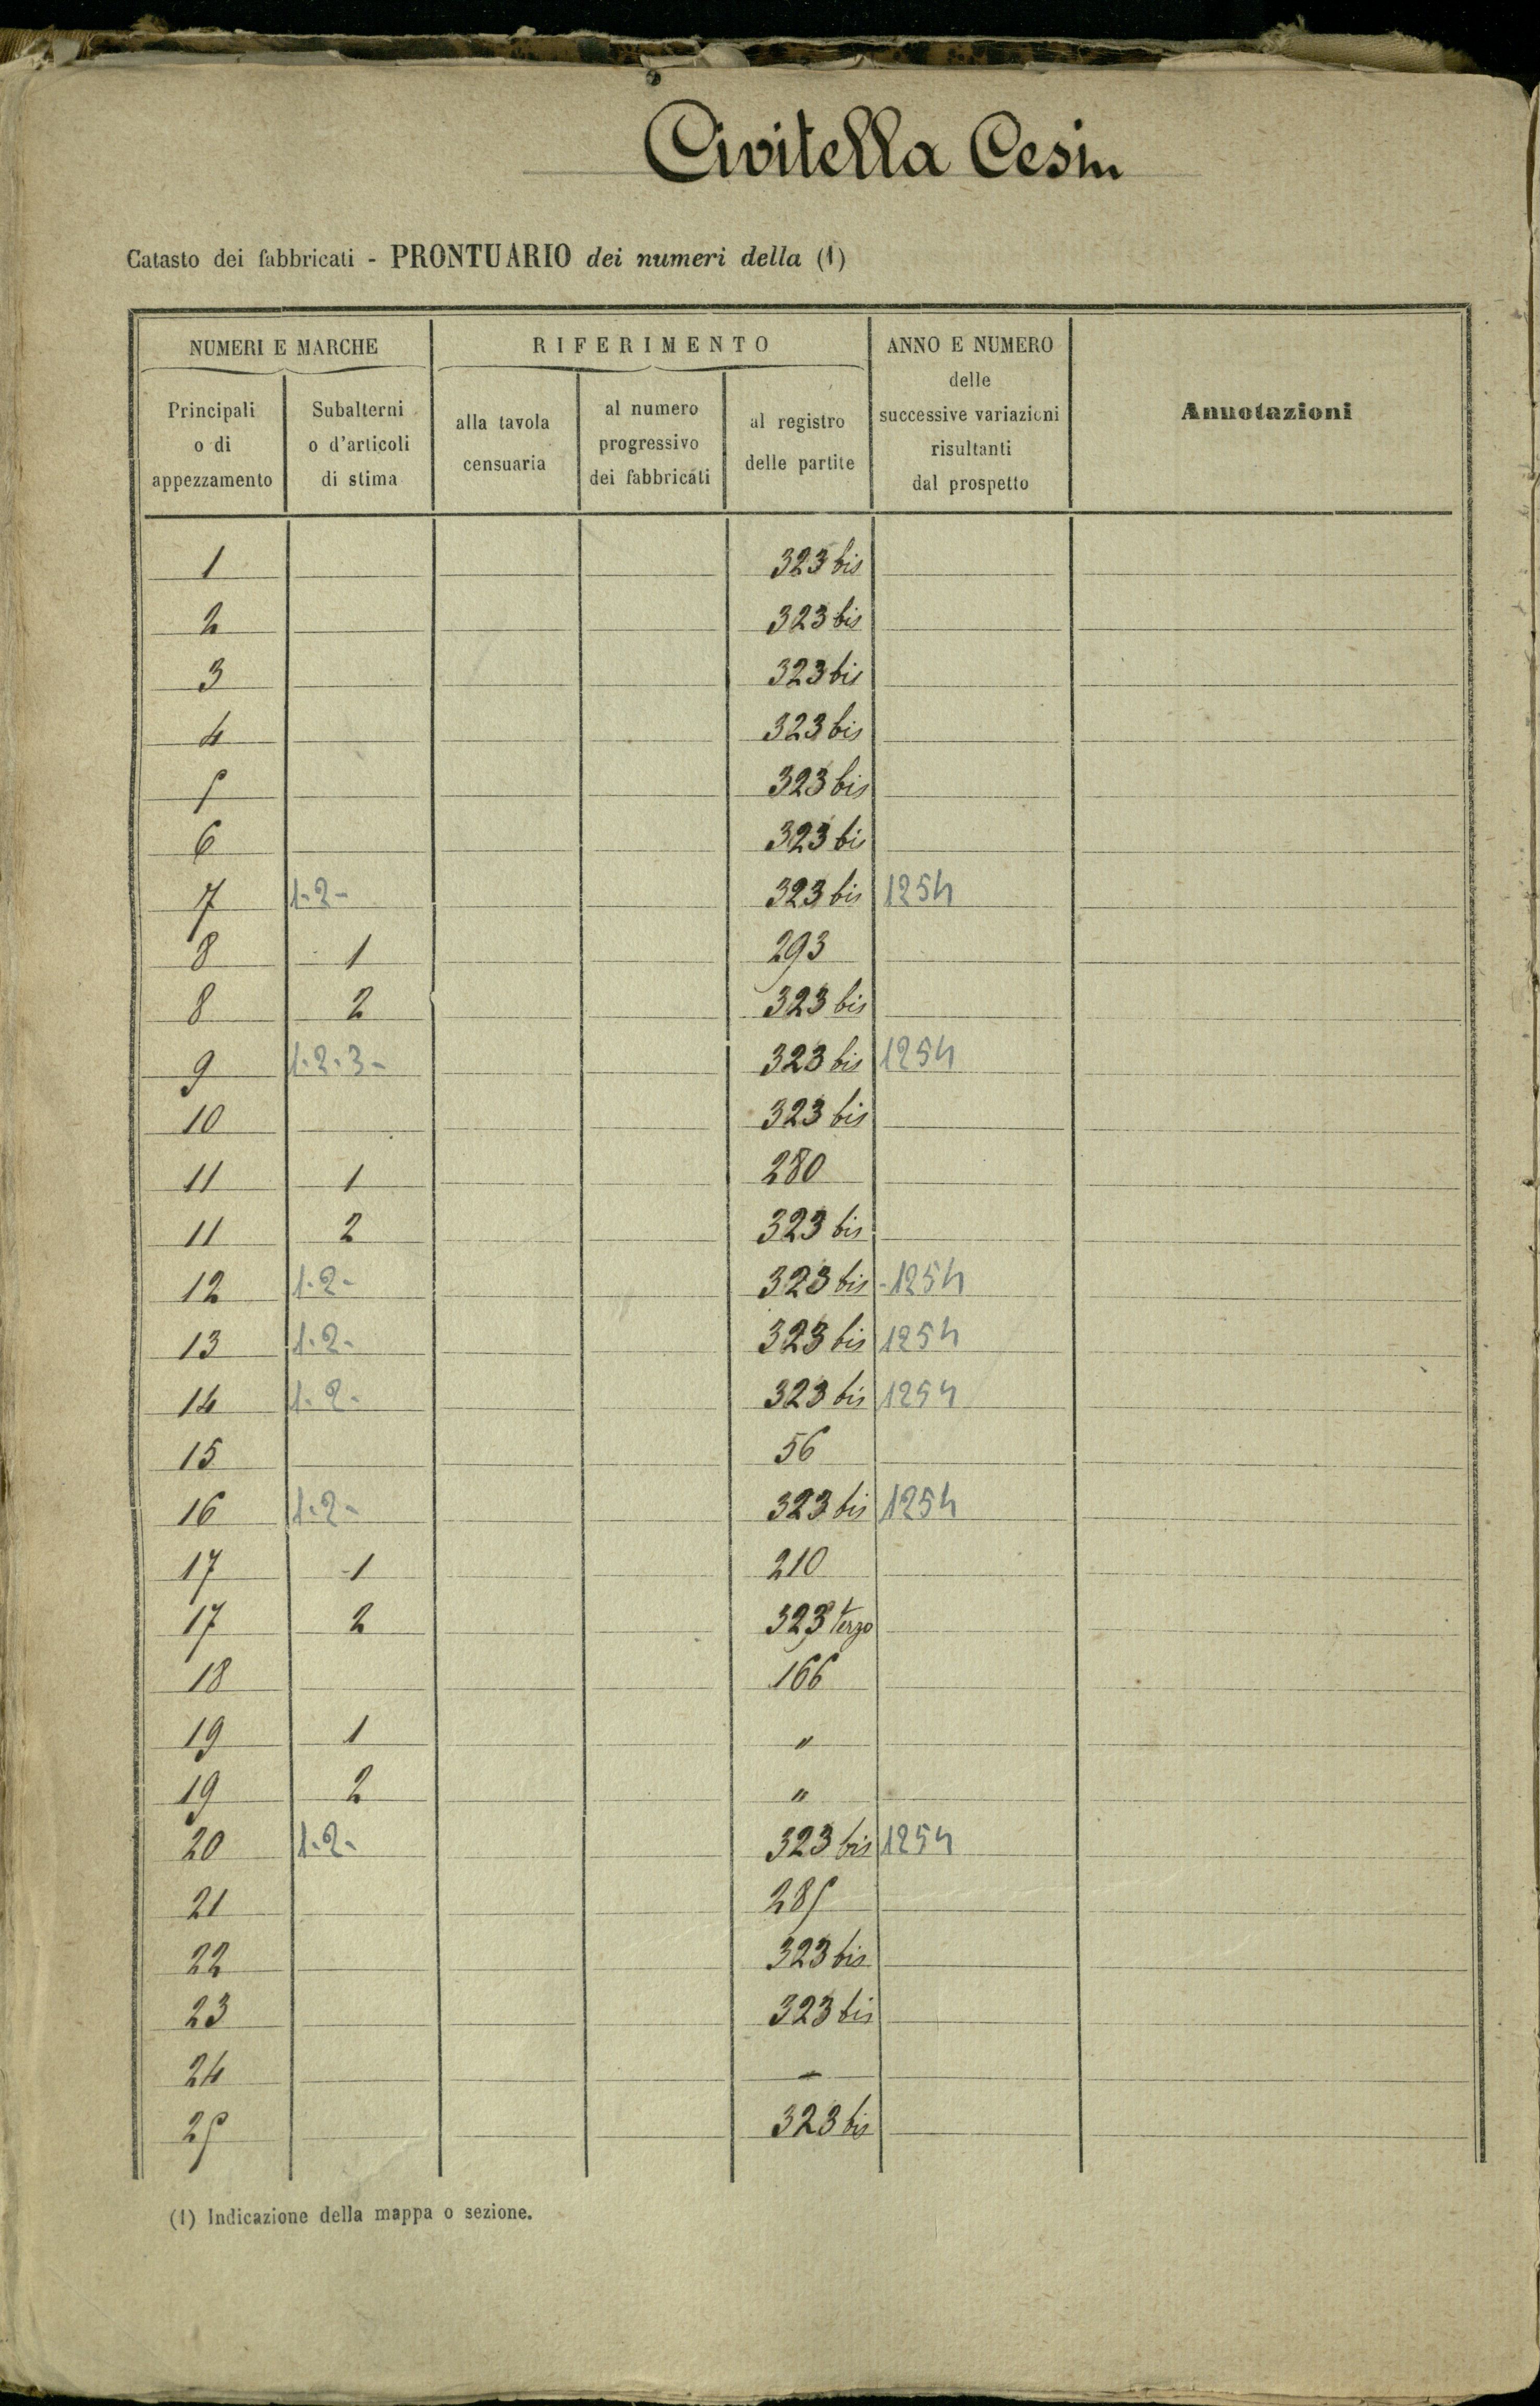 Civitella Cesi
Catasto dei fabbricati - PRONTUARIO dei numeri della (1)
NUMERI E MARCHE
RIFERIMENTO
ANNO E NUMERO
delle
successive variazioni
risultanti
dal prospetto
Annotazioni
Principali
o di
appezzamento
Subalterni
o d'articoli
di stima
alla tavola
censuaria
al numero
progressivo
dei fabbricati
al registro
delle partite
1 323 bis
2 323 bis
3 323 bis
4 323 bis
5 323 bis
6 323 bis
7 1-2- 323 bis 1254
8 1 293
8 2 323 bis
9 1-2-3- 323 bis 1254
10 323 bis
11 1 280
11 2 323 bis
12 1-2- 323 bis -1254
13 1-2- 323 bis 1254
14 1-2- 323 bis 1254
15 56
16 1-2- 323 bis 1254
17 1 210
17 2 323 terzo
18 166
19 1 "
19 2 "
20 1-2- 323 bis 1254
21 285
22 323 bis
23 323 bis
24 —
25 323 bis
(1) Indicazione della mappa o sezione.